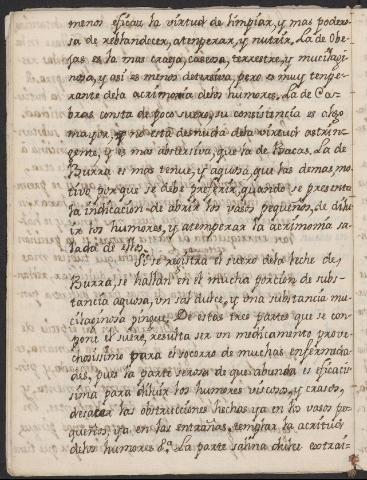 menos eficaz la virtud de limpiar, y mas podero-
sa de reblandecer, atemperar, y nutrir. La de Obe-
jas es la mas crasa, caseosa, terrestre, y mucilagi-
nosa, y asi es menos detersiva, pero es muy tempe-
rante de la acrimonia delos humores. La de Ca-
bras consta de poco suero, su consistencia es algo
mayor, y no está desnuda dela virtud astrin-
gente, y es mas abstersiva, que la de Bacas. La de
Burra es mas tenue, y aquosa, que las demas, mo-
tivo por que se debe preferir, quando se presenta
la indicacion de abrir los vasos pequeños, de dilu-
ir los humores, y atemperar la acrimonia sa-
lada de ellos.
Si se registra el suero dela leche de
Burra, se hallan en el mucha porcion de subs-
tancia aquosa, un sal dulce, y una substancia mu-
cilaginosa pingue. De estas tres partes que se com-
pone el suero, resulta ser un medicamento prove-
chosissimo para el socorro de muchas enfermeda-
des, pues la parte serosa de que abunda es eficacis-
sima para diluir los humores viscosos, y crasos,
desatar las obstrucciones hechas ya en los vasos pe-
queños, ya en las entrañas, templar la acritud
delos humores &a. La parte salina dulce extrai-